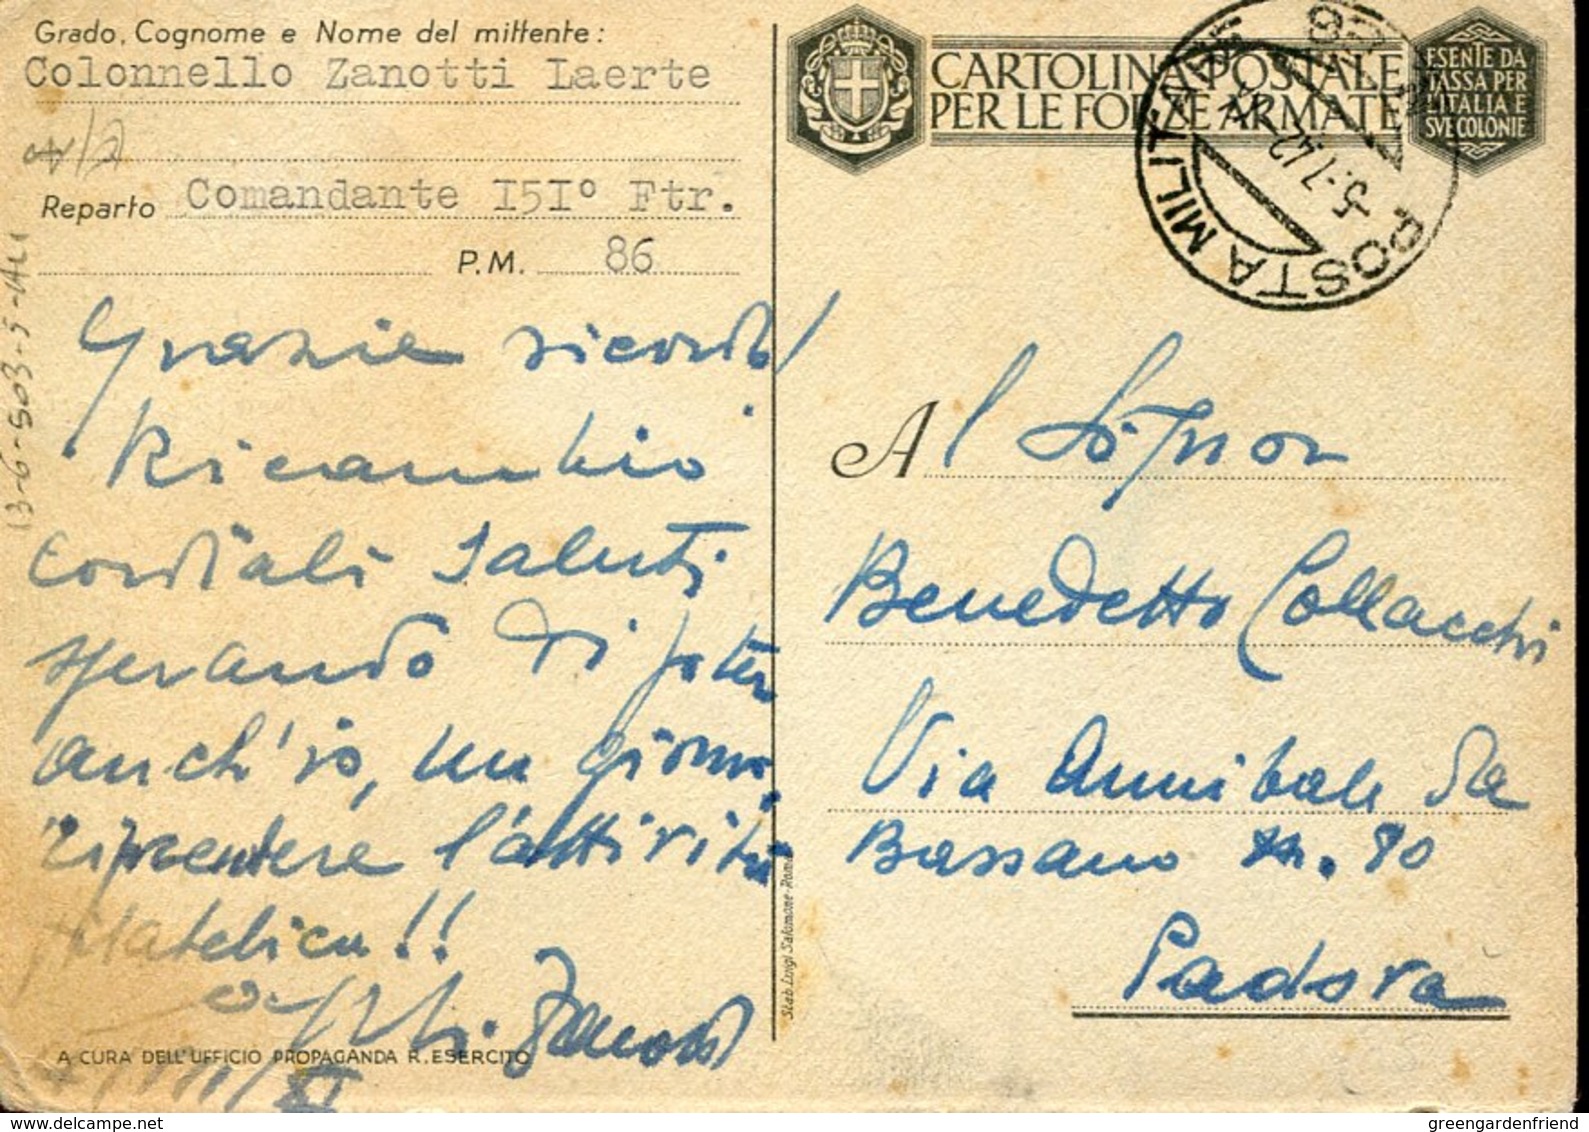 Grado, Cognome e Nome del mittente:
Colonnello Zanotti Laerte
Reparto Comandante I5I° Ftr.
P.M. 86
Grazie ricordo!
Ricambio
cordiali saluti
sperando di poter
anch'io, un giorno,
riprendere l'attività
filatelica!!
Zanotti
A CURA DELL'UFFICIO PROPAGANDA R. ESERCITO
13-6-503-5-ALI
Stab. Luigi Salomone - Roma
CARTOLINA POSTALE
PER LE FORZE ARMATE
ESENTE DA
TASSA PER
L'ITALIA E
SVE COLONIE
POSTA MILITARE
86
-5.-7.42
Al Signor
Benedetto Collacchi
Via Annibale da
Bassano n. 90
Padova
delcampe.net
greengardenfriend